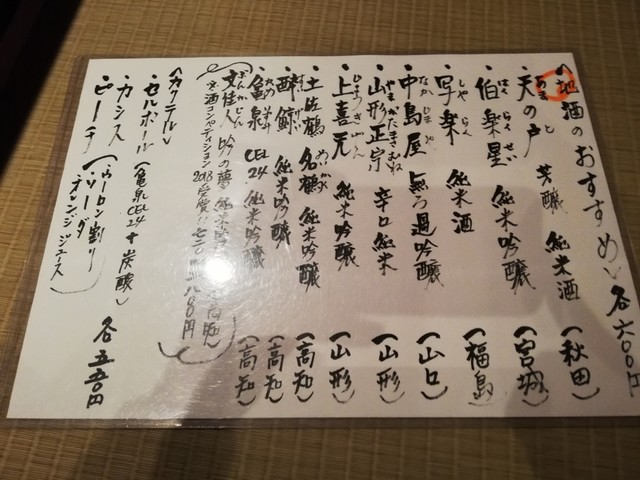 〈地酒のおすすめ〉 各六〇〇円
・天の戸 芳醸 純米酒 (秋田)
あま と
・伯楽星 純米吟醸 (宮城)
はく らく せい
・写楽 純米酒 (福島)
しゃ らく
・中島屋 無ろ過吟醸 (山口)
なか じま や
・山形正宗 辛口純米 (山形)
やまがたまさむね
・上喜元 純米吟醸 (山形)
じょうきげん
・土佐鶴 名鶴 純米吟醸 (高知)
・酔鯨 純米吟醸 (高知)
・亀泉 CEL24 純米吟醸 (高知)
・文佳人 吟の夢 純米吟醸
ぶんかじん
酒コンペティション2018受賞 八〇〇円
〈カクテル〉
・セルボール (亀泉CEL24+炭酸)
・カシス
・ピーチ (ウーロン割り ソーダ オレンジジュース) 各五五〇円